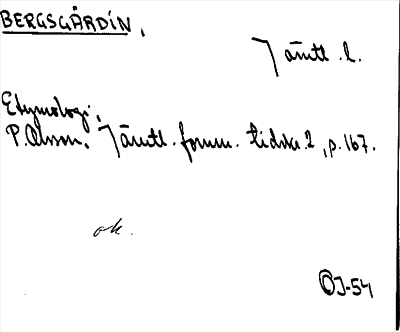 BERGSGÅRDÍN.
Jämtl. l.
Etymologi:
P. Olsson, Jämtl. fornm. tidskr. 2, p. 167.
ok.
OJ-54